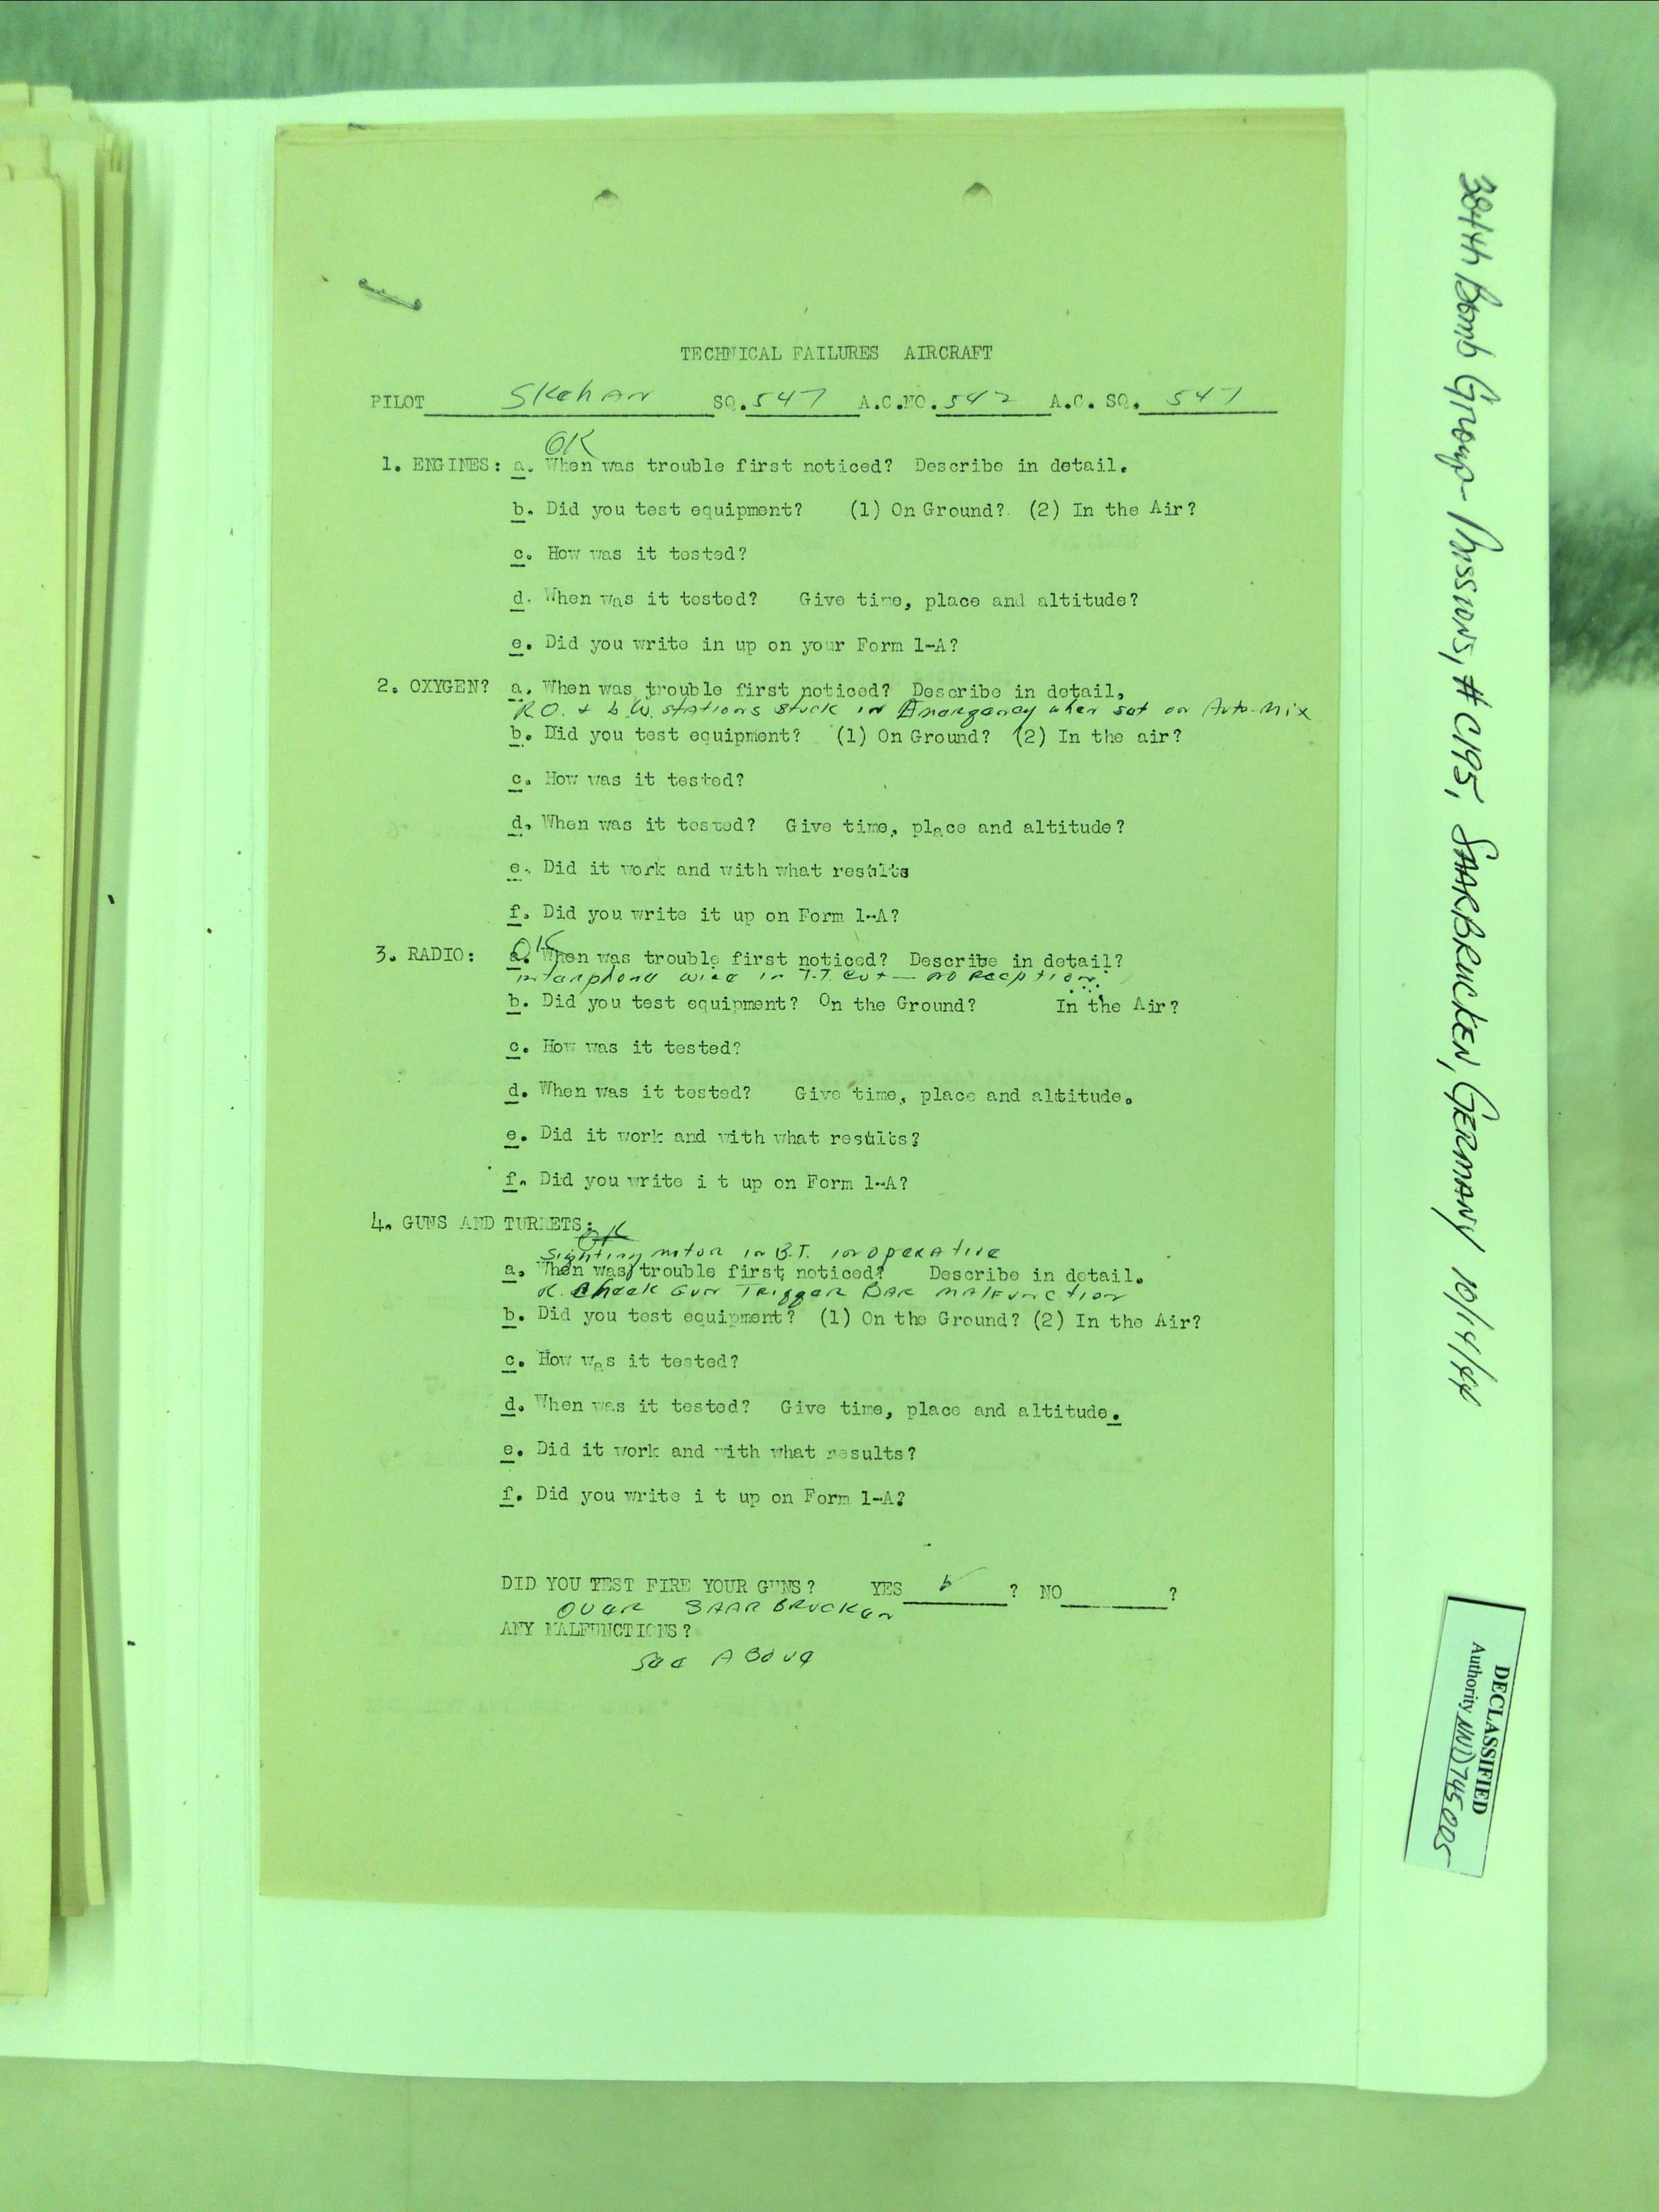 TECHNICAL FAILURES AIRCRAFT
PILOT Skehan SQ. 547 A.C.NO. 542 A.C. SQ. 547
OK
1. ENGINES: a. When was trouble first noticed? Describe in detail.
b. Did you test equipment? (1) On Ground? (2) In the Air?
c. How was it tested?
d. When was it tested? Give time, place and altitude?
e. Did you write in up on your Form 1-A?
2. OXYGEN? a. When was trouble first noticed? Describe in detail,
R.O. & L.W. stations stuck in Emergency when set on Auto-Mix
b. Did you test equipment? (1) On Ground? (2) In the air?
c. How was it tested?
d. When was it tested? Give time, place and altitude?
e. Did it work and with what results
f. Did you write it up on Form 1-A?
OK
3. RADIO: a. When was trouble first noticed? Describe in detail?
interphone wire in T.T. cut — no reception
b. Did you test equipment? On the Ground? In the Air?
c. How was it tested?
d. When was it tested? Give time, place and altitude.
e. Did it work and with what results?
f. Did you write i t up on Form 1-A?
4. GUNS AND TURRETS:
OK
Sighting motor in B.T. inoperative
a. When was trouble first noticed? Describe in detail.
R. Cheek Gun Trigger Bar malfunction
b. Did you test equipment? (1) On the Ground? (2) In the Air?
c. How was it tested?
d. When was it tested? Give time, place and altitude.
e. Did it work and with what results?
f. Did you write i t up on Form 1-A?
DID YOU TEST FIRE YOUR GUNS? YES ? NO ?
Over Saarbrucken
ANY MALFUNCTIONS?
See Above
384th Bomb Group - Missions, # C195, SAARBRUCKEN, GERMANY 10/14/44
DECLASSIFIED
Authority NND745005